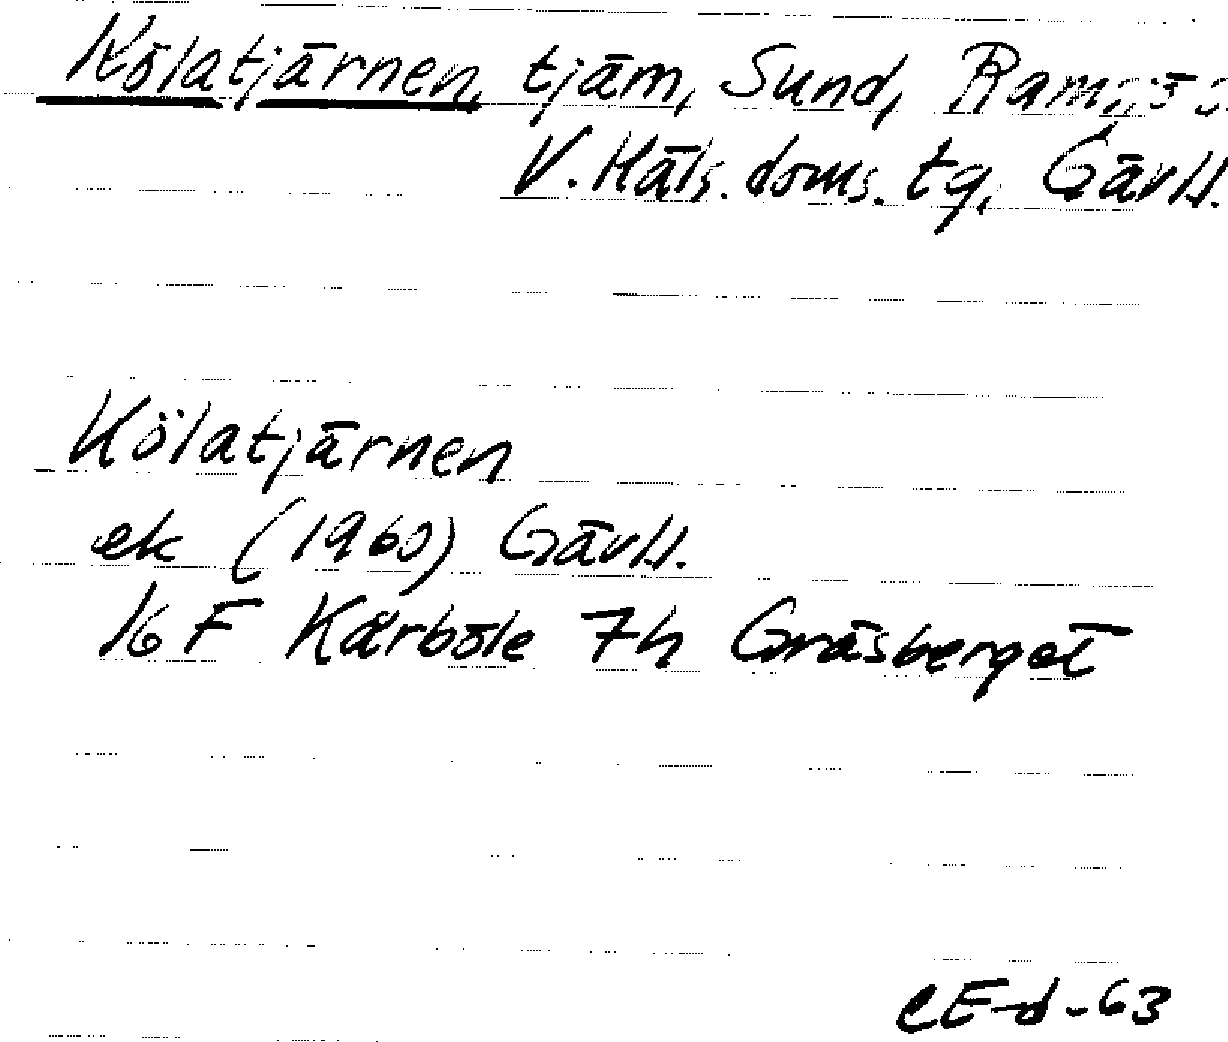 Kölatjärnen, tjärn, Sund, Ramsjö s.
V. Häls. doms. tg, Gävl l.
Kölatjärnen
ek (1960) Gävl l.
16 F Kårböle 7h Gråsberget
CE-d-63